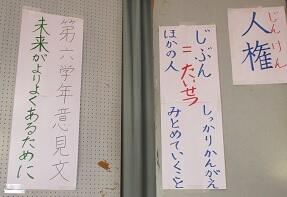 じんけん
人権
じぶん
ほかの人
=たいせつ
しっかりかんがえ
みとめていくこと
第六学年意見文
未来がよりよくあるために